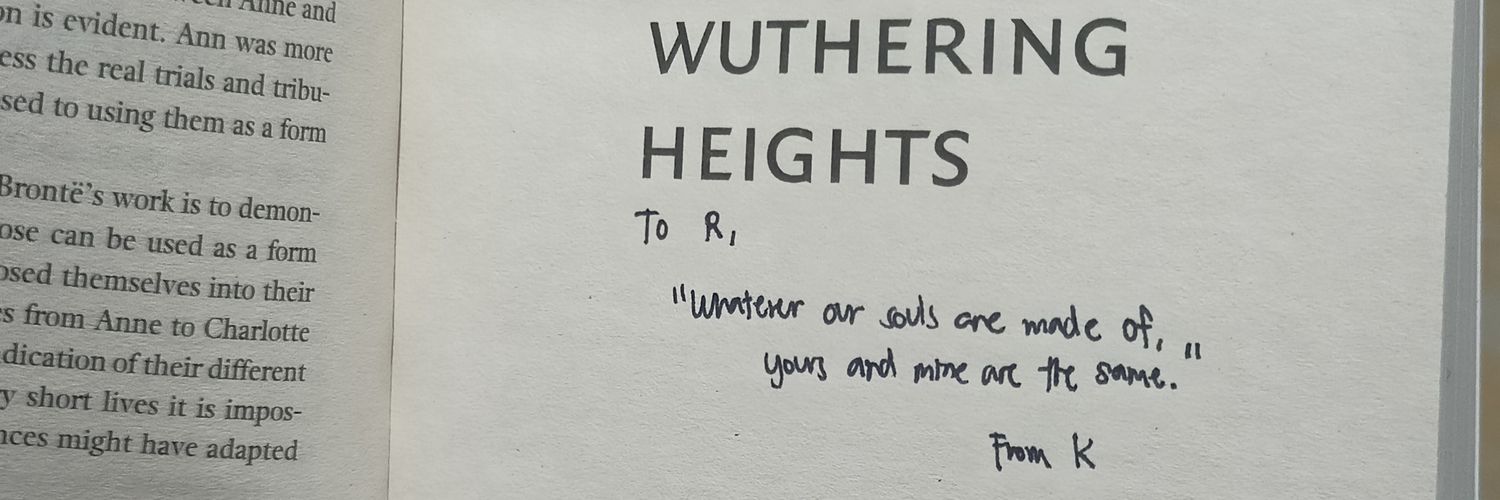 en Anne and
on is evident. Ann was more
ess the real trials and tribu-
sed to using them as a form
Brontë's work is to demon-
ose can be used as a form
osed themselves into their
s from Anne to Charlotte
dication of their different
y short lives it is impos-
nces might have adapted
WUTHERING
HEIGHTS
To R,
"Whatever our souls are made of,
yours and mine are the same."
From K